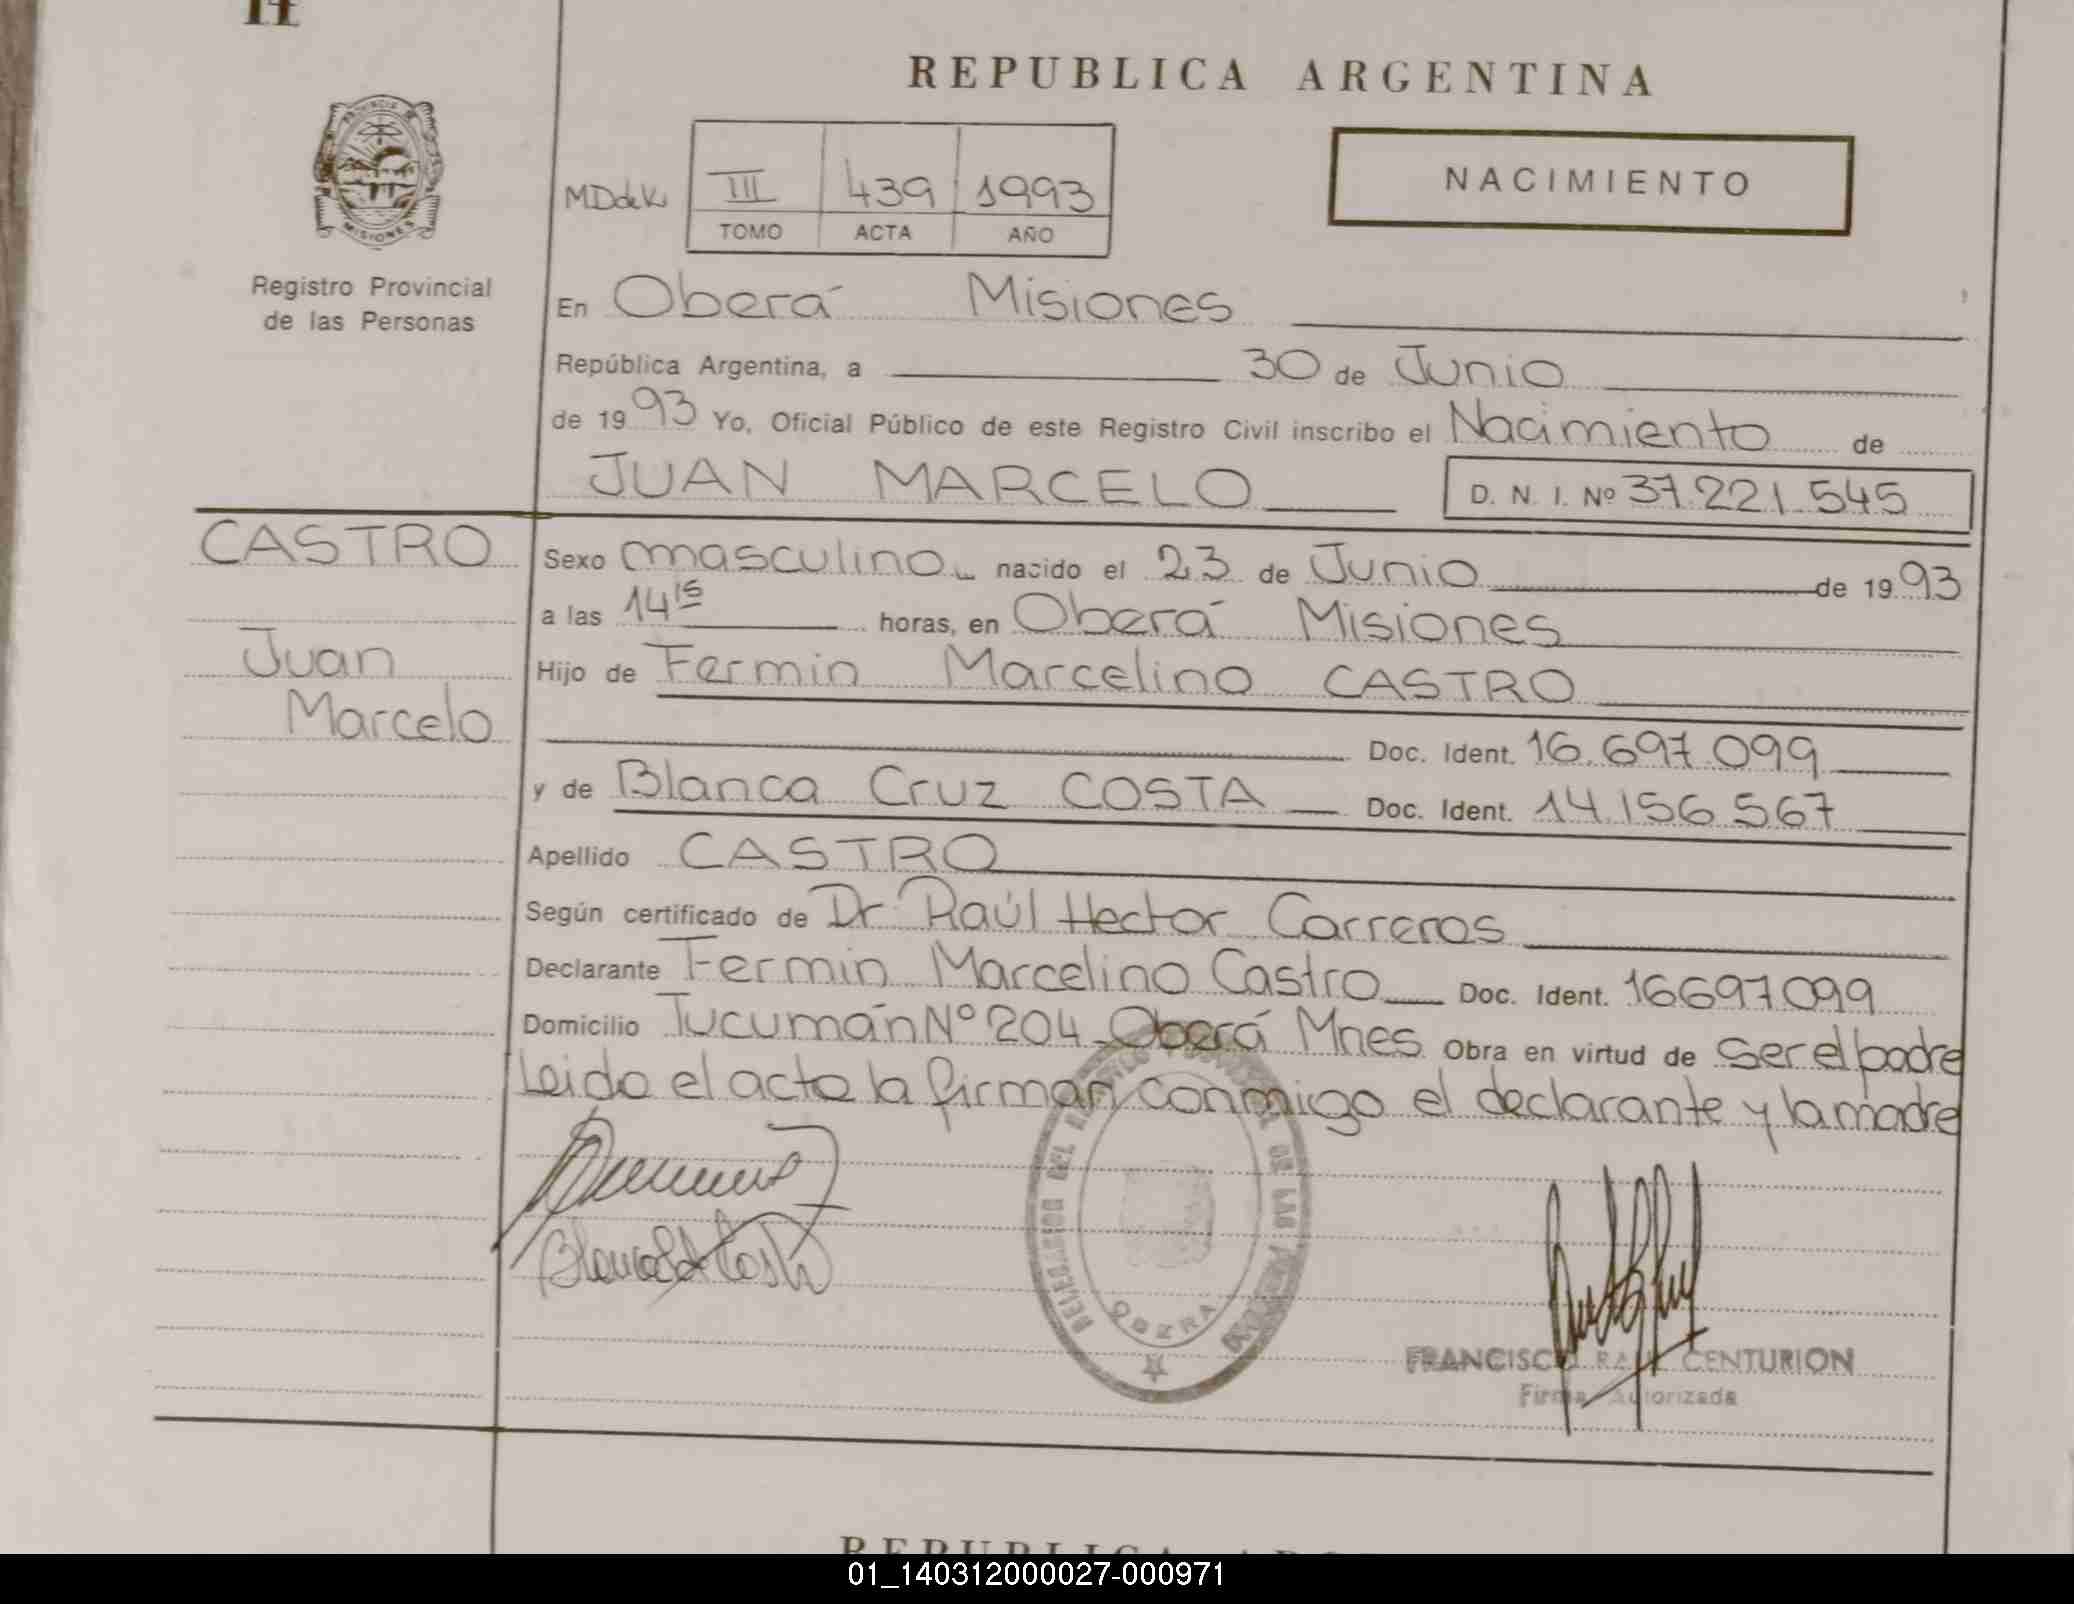 REPUBLICA ARGENTINA
PROVINCIA DE
MISIONES
Registro Provincial
de las Personas
MDdeK
III 439 1993
TOMO ACTA AÑO
NACIMIENTO
En Oberá Misiones
República Argentina, a 30 de Junio
de 1993 Yo, Oficial Público de este Registro Civil inscribo el Nacimiento de
JUAN MARCELO D. N. I. Nº 37.221.545
CASTRO
Juan
Marcelo
Sexo masculino nacido el 23 de Junio de 1993
a las 14 15 horas, en Oberá Misiones
Hijo de Fermin Marcelino CASTRO
Doc. Ident. 16.697.099
y de Blanca Cruz COSTA Doc. Ident. 14.156.567
Apellido CASTRO
Según certificado de Dr Raúl Hector Carreras
Declarante Fermin Marcelino Castro Doc. Ident. 16697099
Domicilio Tucumán Nº 204 - Oberá Mnes Obra en virtud de ser el padre
Leido el acta la firman conmigo el declarante y la madre
DEL DE LAS
OBERA
FRANCISCO RAUL CENTURION
Firma Autorizada
01_140312000027-000971